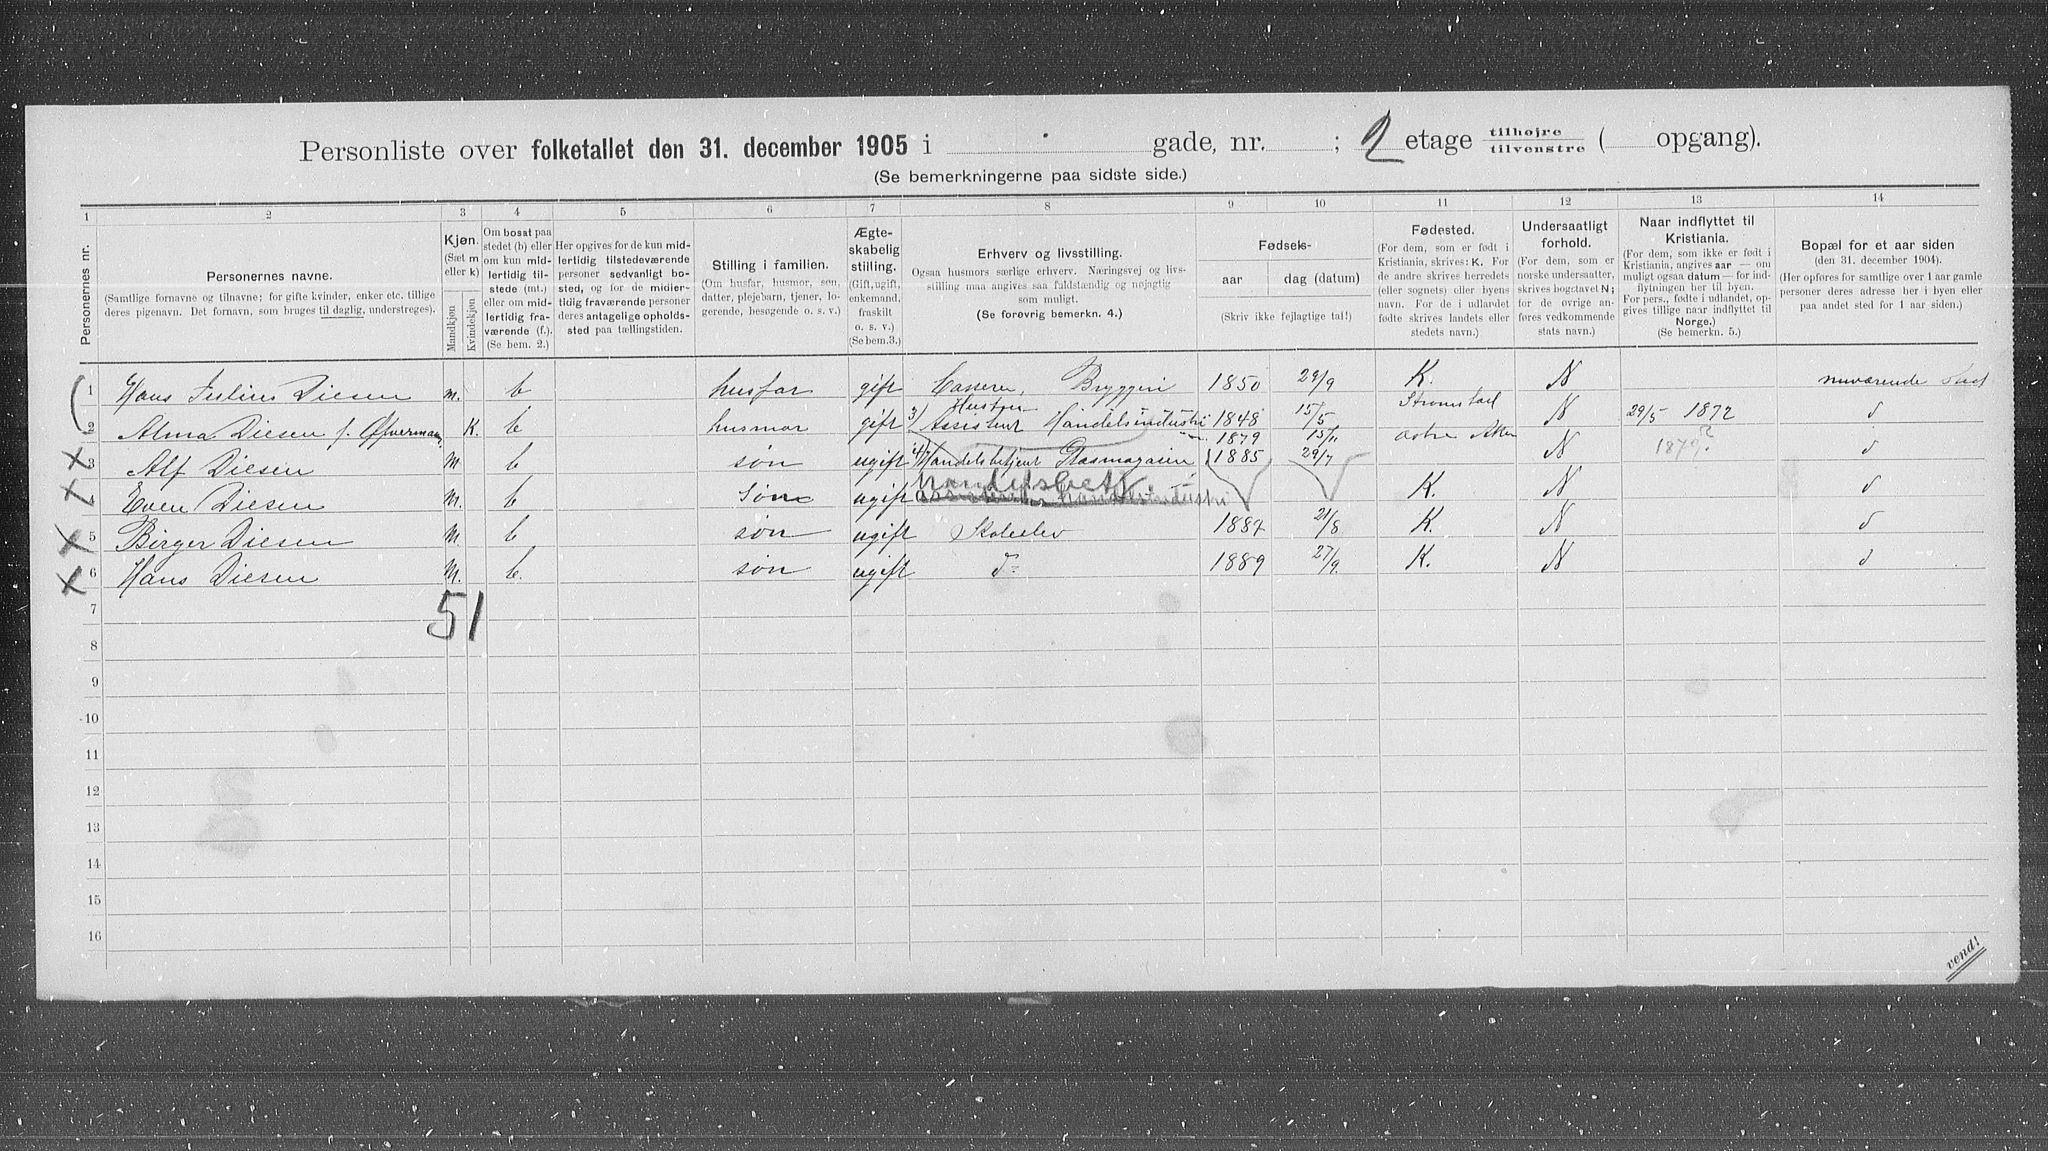 Personliste over folketallet den 31. december 1905 i gade, nr. ; 2 etage tilhøjre tilvenstre ( opgang).
(Se bemerkningerne paa sidste side.)
1 2 3 4 5 6 7 8 9 10 11 12 13 14
Personernes nr.
Personernes navne.
(Samtlige fornavne og tilnavne; for gifte kvinder, enker etc. tillige
deres pigenavn. Det fornavn, som bruges til daglig, understreges).
Kjøn.
(Sæt m
eller k)
Mandkjøn
Kvindekjøn
Om bosat paa
stedet (b) eller
om kun mid-
lertidig til-
stede (mt.)
eller om mid-
lertidig fra-
værende (f.).
(Se bem. 2.)
Her opgives for de kun mid-
lertidig tilstedeværende
personer sedvanligt bo-
sted, og for de midler-
tidig fraværende personer
deres antagelige opholds-
sted paa tællingstiden.
Stilling i familien.
(Om husfar, husmor, søn,
datter, plejebarn, tjener, lo-
gerende, besøgende o. s. v.)
Ægte-
skabelig
stilling.
(Gift, ugift,
enkemand,
fraskilt
o. s. v.)
(Se bem. 3.)
Erhverv og livsstilling.
Ogsaa husmors særlige erhverv. Næringsvej og livs-
stilling maa angives saa fuldstændig og nøjagtig
som muligt.
(Se forøvrig bemerkn. 4.)
Fødsels-
aar dag (datum)
(Skriv ikke fejlagtige tal!)
Fødested.
(For dem, som er født i
Kristiania, skrives: K. For
de andre skrives herredets
(eller sognets) eller byens
navn. For de i udlandet
fødte skrives landets eller
stedets navn.)
Undersaatligt
forhold.
(For dem, som er
norske undersaatter,
skrives bogstavet N;
for de øvrige an-
føres vedkommende
stats navn.)
Naar indflyttet til
Kristiania.
(For dem, som ikke er født i
Kristiania, angives aar — om
muligt ogsaa datum — for ind-
flytningen her til byen.
For pers., fødte i udlandet, op-
gives tillige naar indflyttet til
Norge.)
(Se bemerkn. 5.)
Bopæl for et aar siden
(den 31. december 1904).
(Her opføres for samtlige over 1 aar gamle
personer deres adresse her i byen eller
paa andet sted for 1 aar siden.)
1 Hans Julius Diesen m. b husfar gift Casserer, Bryggeri 1850 29/9 K. N nuværende Sted
Hustru
2 Alma Diesen f. Øfverman K. b husmor gift 1848 15/5 Strømstad N 29/5 1872 d
3) Assistent Handelsindustri 1879 13/11
3 Alf Diesen M b søn ugift 4) Handelsbetjent Glasmagasin 1885 29/7 Aker N 1879? d
handelsbetj.
4 Even Diesen M. b Søn ugift K. N d
5 Birger Diesen M. b søn ugift Skoleelev 1887 21/8 K. N d
6 Hans Diesen M. b. søn ugift d 1889 27/9. K. N d
51
7
8
9
10
11
12
13
14
15
16
vend!